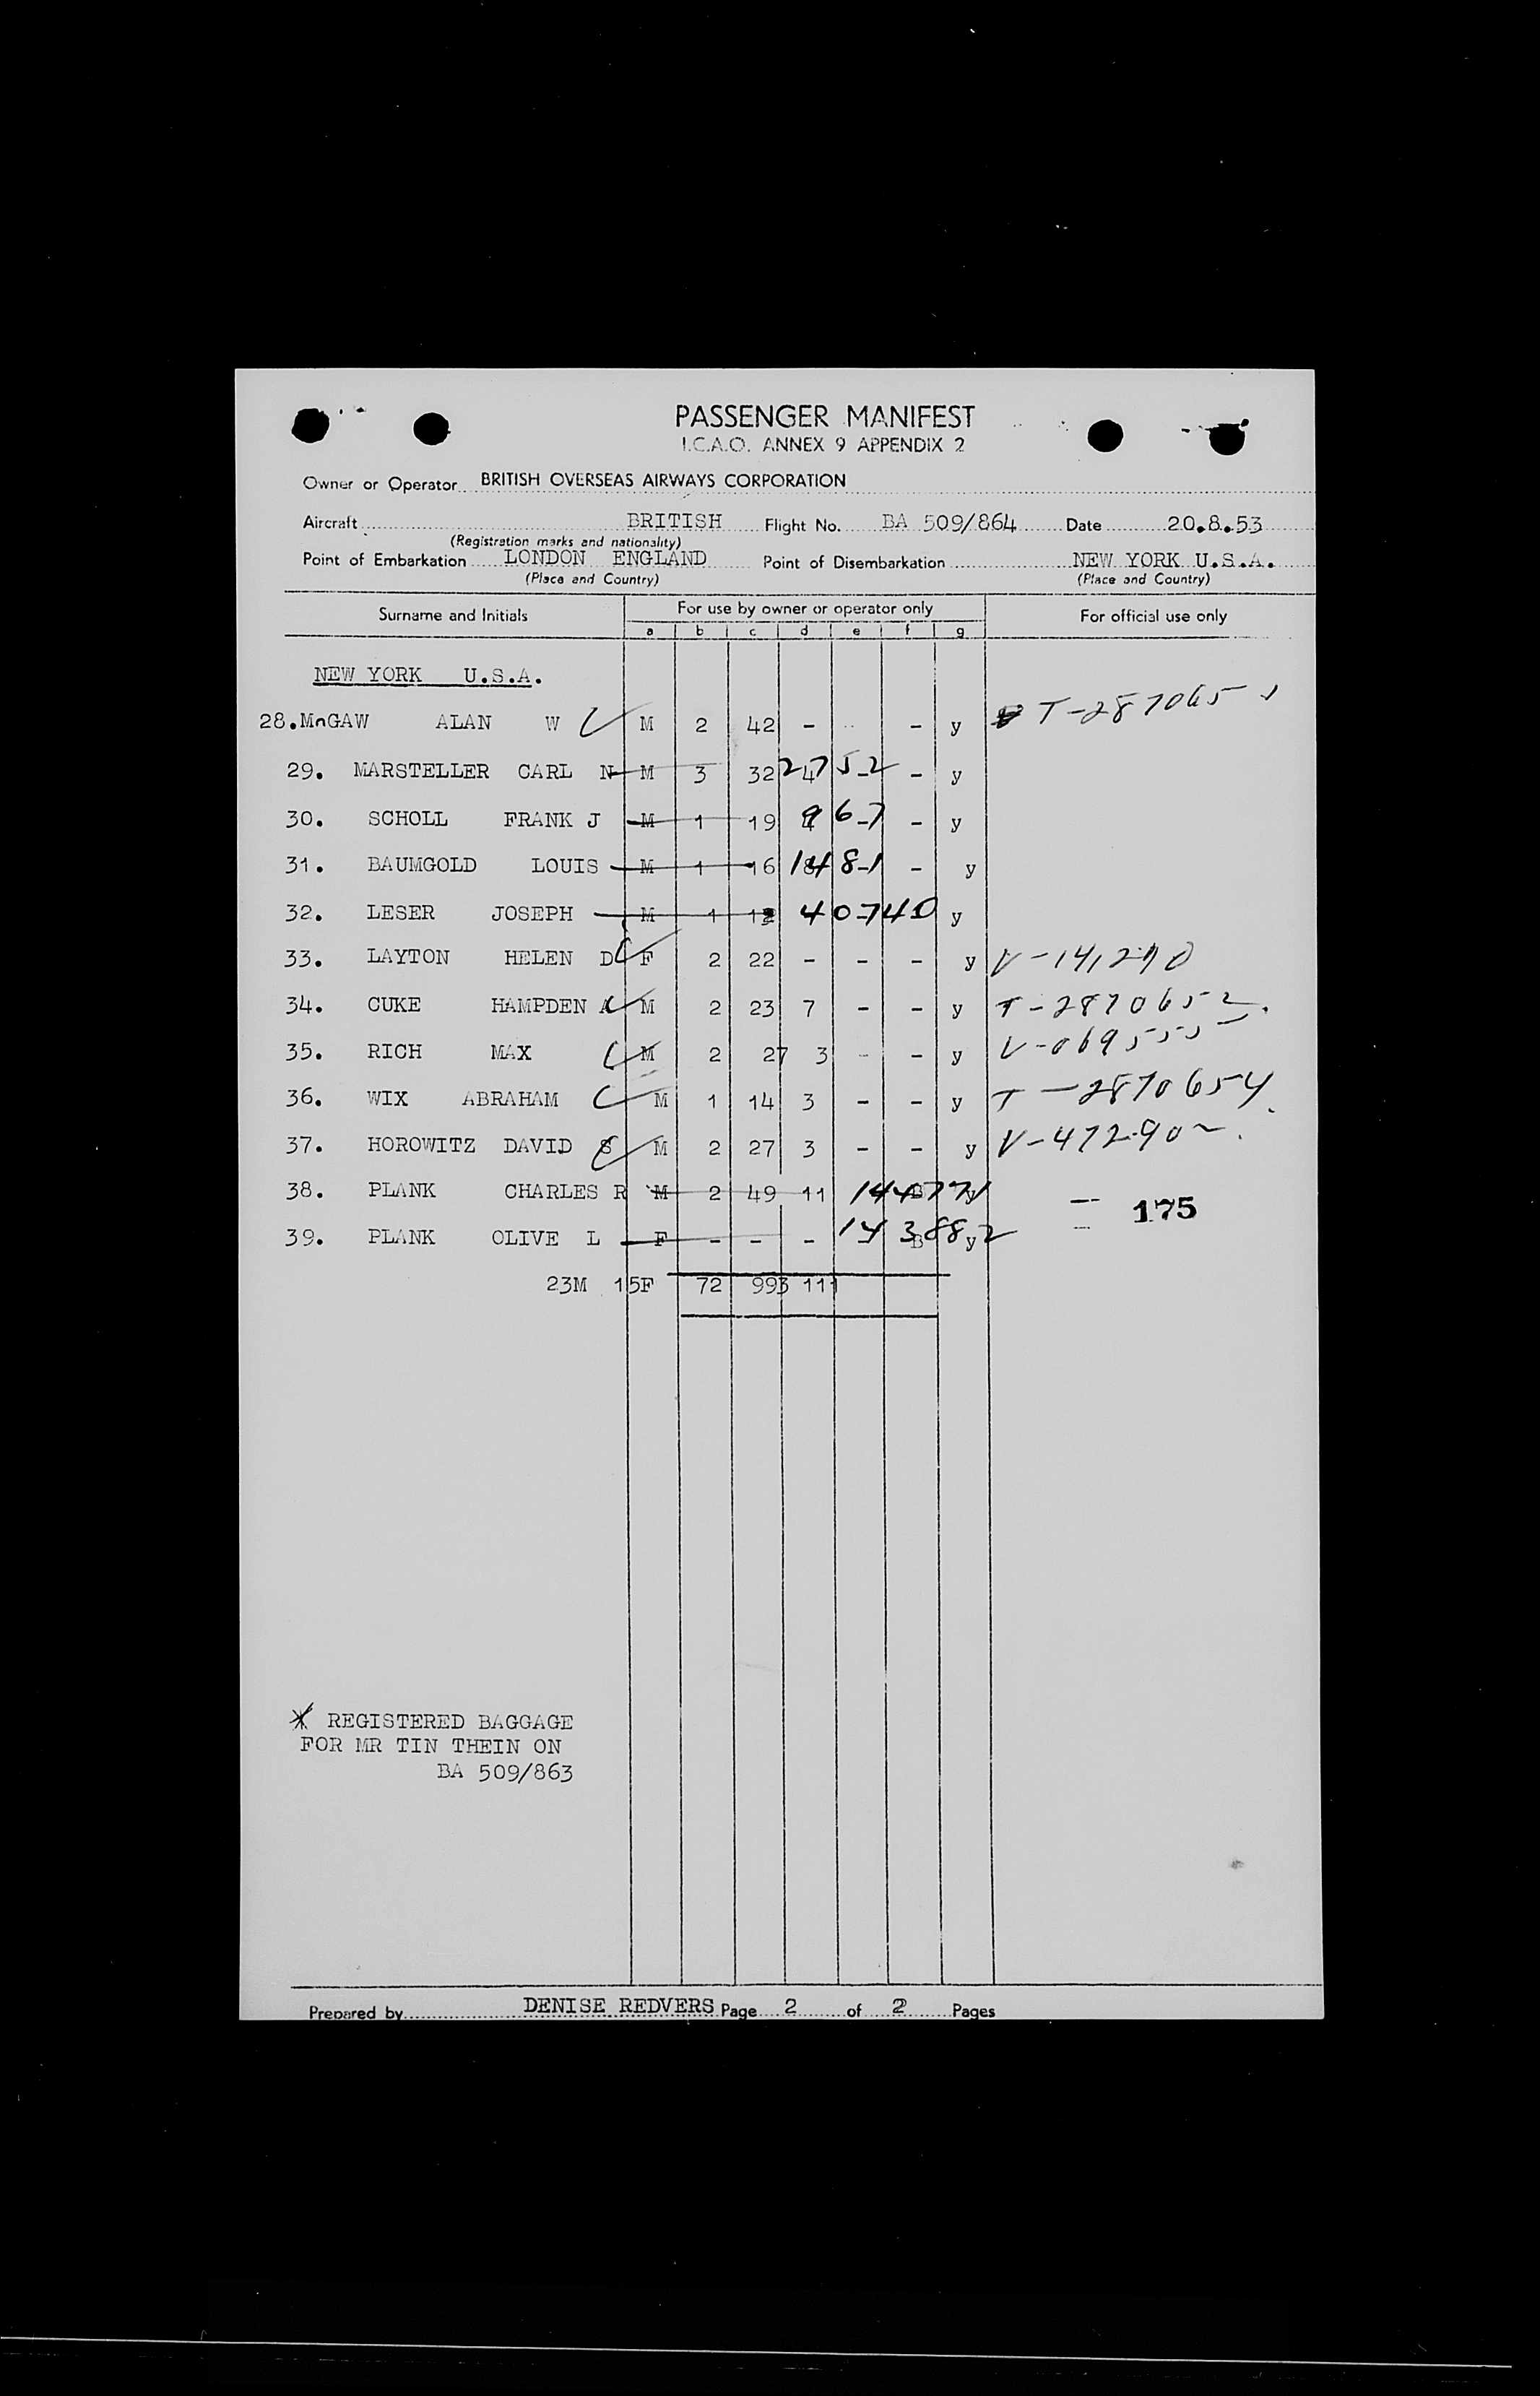 PASSENGER MANIFEST
I.C.A.O. ANNEX 9 APPENDIX 2
Owner or Operator BRITISH OVERSEAS AIRWAYS CORPORATION
Aircraft BRITISH Flight No. BA 509/864 Date 20.8.53
(Registration marks and nationality)
Point of Embarkation LONDON ENGLAND Point of Disembarkation NEW YORK U.S.A.
(Place and Country) (Place and Country)
Surname and Initials For use by owner or operator only For official use only
a b c d e f g
NEW YORK U.S.A.
28. McGAW ALAN W M 2 42 - - - y T-2870651
29. MARSTELLER CARL N M 3 32 4 2752 - y
30. SCHOLL FRANK J M 1 19 967 - y
31. BAUMGOLD LOUIS M 1 16 1481 - y
32. LESER JOSEPH M 1 40740 y
33. LAYTON HELEN D F 2 22 - - - y
34. CUKE HAMPDEN A M 2 23 7 - - y T-2870652.
35. RICH MAX M 2 27 3 - - y V-069555
36. WIX ABRAHAM M 1 14 3 - - y T-2870654
37. HOROWITZ DAVID S M 2 27 3 - - y V-472902.
38. PLANK CHARLES R M 2 49 11 B y 175
39. PLANK OLIVE L F - - - - B y 143882
23M 15F 72 993 111
REGISTERED BAGGAGE
FOR MR TIN THEIN ON
BA 509/863
Prepared by DENISE REDVERS Page 2 of 2 Pages